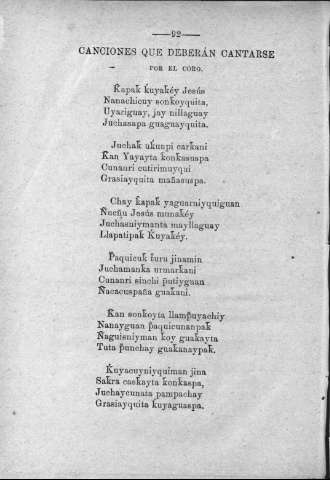 —92—
CANCIONES QUE DEBERÁN CANTARSE
POR EL CORO.
K̄apak̄ k̄uyak̄éy Jesús
Ñanachicuy sonk̄oyquita,
Uyariguay, jay nillaguay
Juchasapa guaguayquita.
Juchak̄ uk̄unpi carkani
K̄an Yayayta k̄onk̄asuspa
Cunanri cutirimuyqui
Grasiayquita mañasuspa.
Chay k̄apak̄ yaguarniyquiguan
Ñucñu Jesús munak̄éy
Juchasniymanta mayllaguay
Llapatipak̄ K̄uyak̄éy.
P̄aquicuk̄ t̄uru jinamin
Juchamanka urmark̄ani
Cunanri sinchi p̄utiyguan
Ñacacuspaña guak̄ani.
K̄an sonk̄oyta llamp̄uyachiy
Ñanayguan p̄aquicunanpak̄
Ñaguisniyman k̄oy guak̄ayta
Tuta p̄unchay guak̄anaypak̄.
K̄uyacuyniyquiman jina
Sak̄ra caskayta k̄onk̄aspa,
Juchaycunata pampachay
Grasiayquita kuyaguaspa.